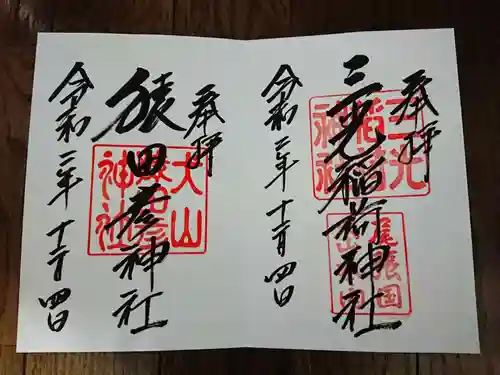 奉拝
三光稲荷神社
令和二年十一月四日
三光
稲荷
神社
尾張国
犬山
奉拝
猿田彦神社
令和二年十一月四日
犬山
猿田彦
神社